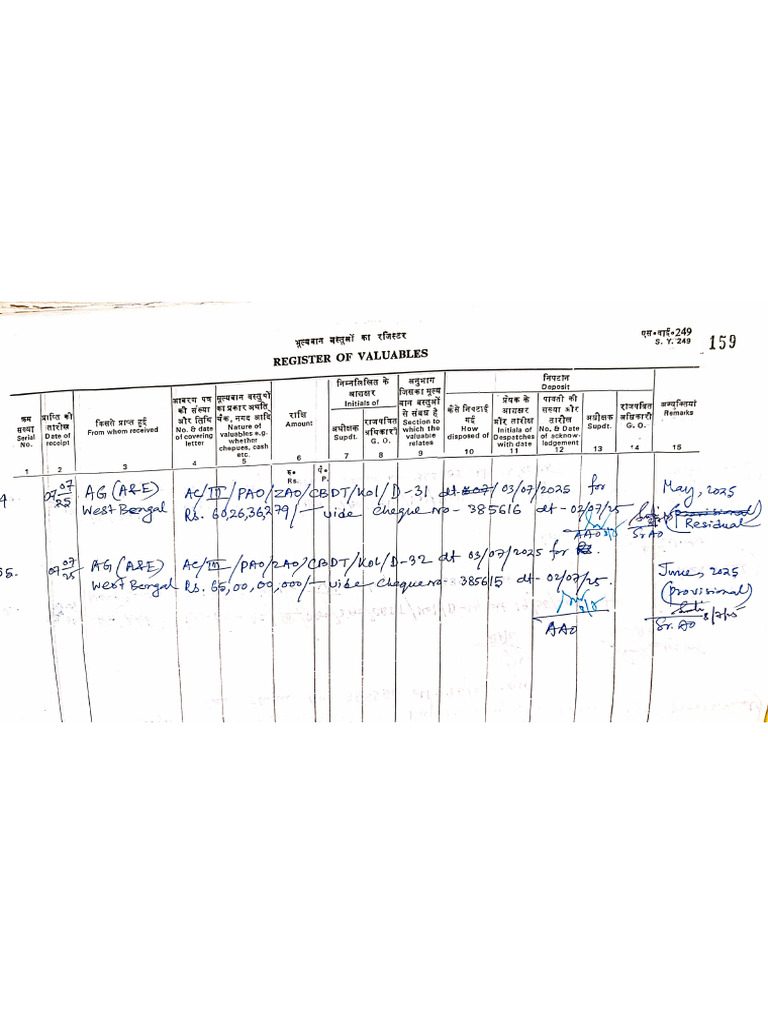 एस॰वाई॰249
S. Y. 249
159
मूल्यवान वस्तुओं का रजिस्टर
REGISTER OF VALUABLES
क्रम संख्या Serial No.
प्राप्ति की तारीख Date of receipt
किससे प्राप्त हुई From whom received
आवरण पत्र की संख्या और तिथि No. & date of covering letter
मूल्यवान वस्तुओं का प्रकार अर्थात् चैक, नगद आदि Nature of valuables e.g. whether cheques, cash etc.
राशि Amount
निम्नलिखित के आद्यक्षर Initials of
अधीक्षक Supdt.
राजपत्रित अधिकारी G. O.
अनुभाग जिसका मूल्यवान वस्तुओं से संबंध है Section to which the valuable relates
निपटान Deposit
कैसे निपटाई गई How disposed of
प्रेषक के आद्यक्षर और तारीख Initials of Despatches with date
पावती की संख्या और तारीख No. & Date of acknow-ledgement
अधीक्षक Supdt.
राजपत्रित अधिकारी G. O.
अभ्युक्तियां Remarks
1 2 3 4 5 6 7 8 9 10 11 12 13 14 15
रु॰ Rs. पै॰ P.
4 07/07/25 AG (A&E) AC/III/PAO/ZAO/CBDT/Kol/D-31 dt 03/07/2025 for May, 2025
West Bengal Rs. 60,26,36,279/- vide cheque no - 385616 dt - 02/07/25 (provisional)
(Residual)
AAO Sr AO
65. 07/07/25 AG (A&E) AC/III/PAO/ZAO/CBDT/Kol/D-32 dt 03/07/2025 for June, 2025
West Bengal Rs. 65,00,00,000/- vide cheque no - 385615 dt - 02/07/25. (provisional)
8/7/25
AAO Sr. AO